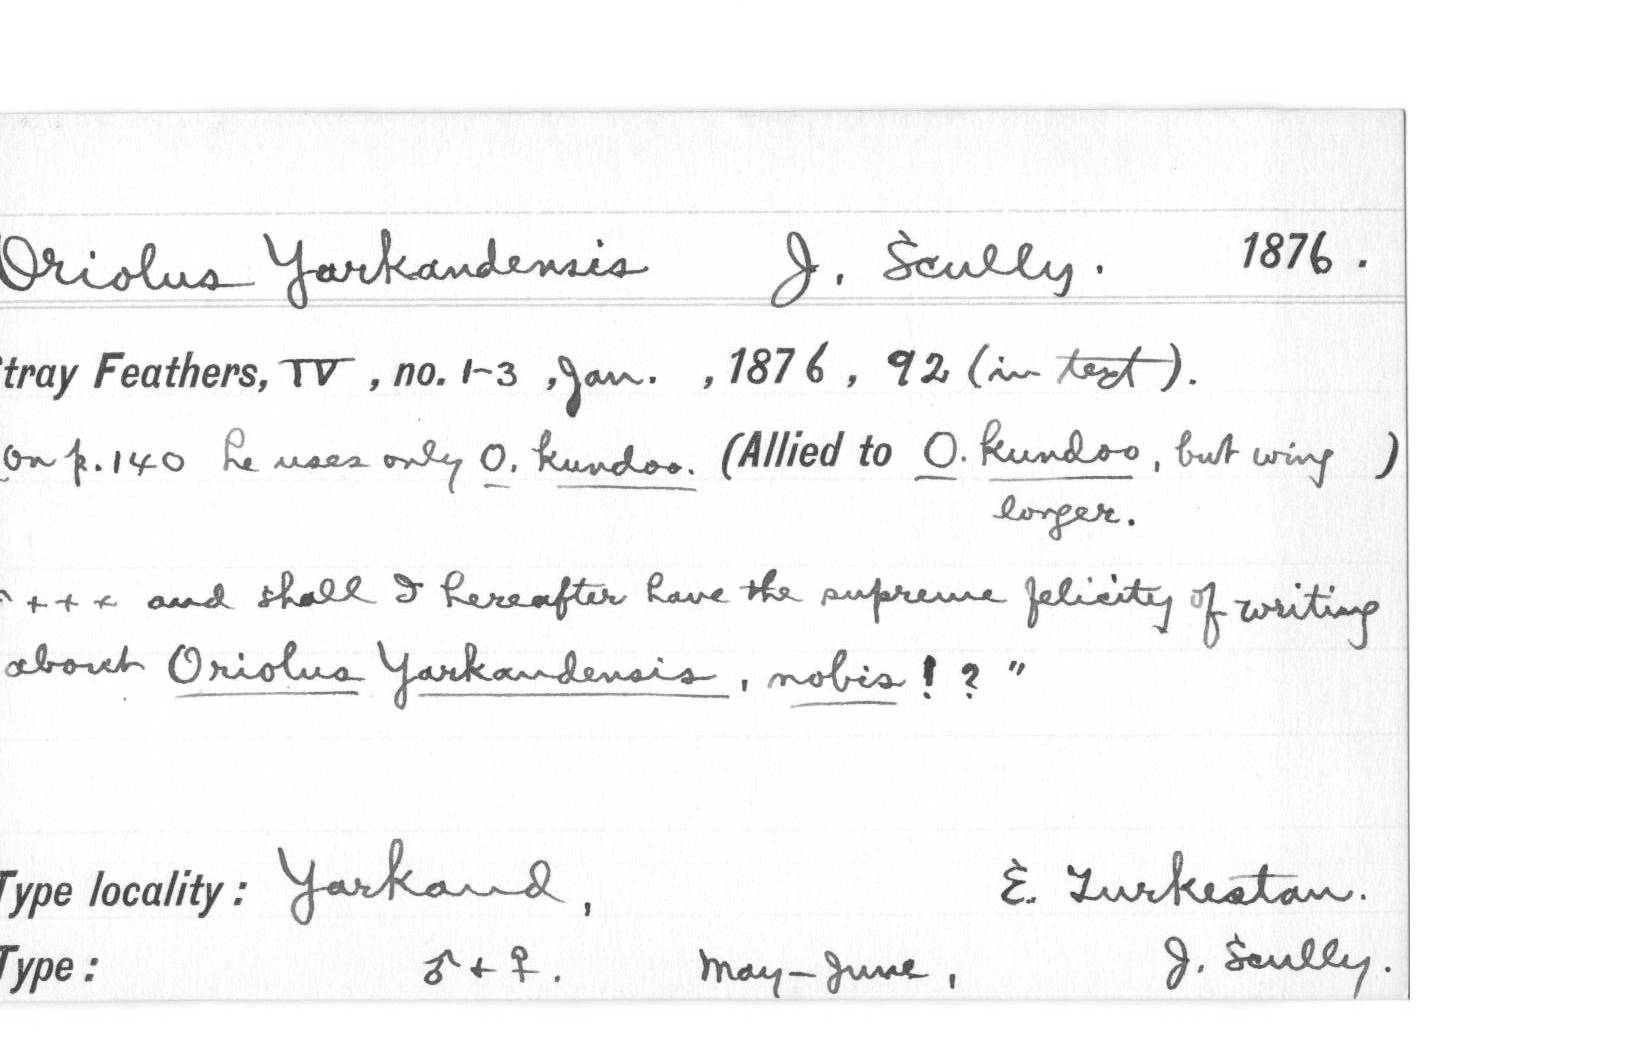 Oriolus Yarkandensis J. Scully. 1876.
tray Feathers, IV, no. 1-3, Jan., 1876, 92 (in text).
On p. 140 he uses only O. kundoo. (Allied to O. kundoo, but wing)
longer.
+ + + and shall I hereafter have the supreme felicity of writing
about Oriolus Yarkandensis, nobis!?"
Type locality: Yarkand, E. Turkestan.
Type: ♂ + ♀. May-June, J. Scully.